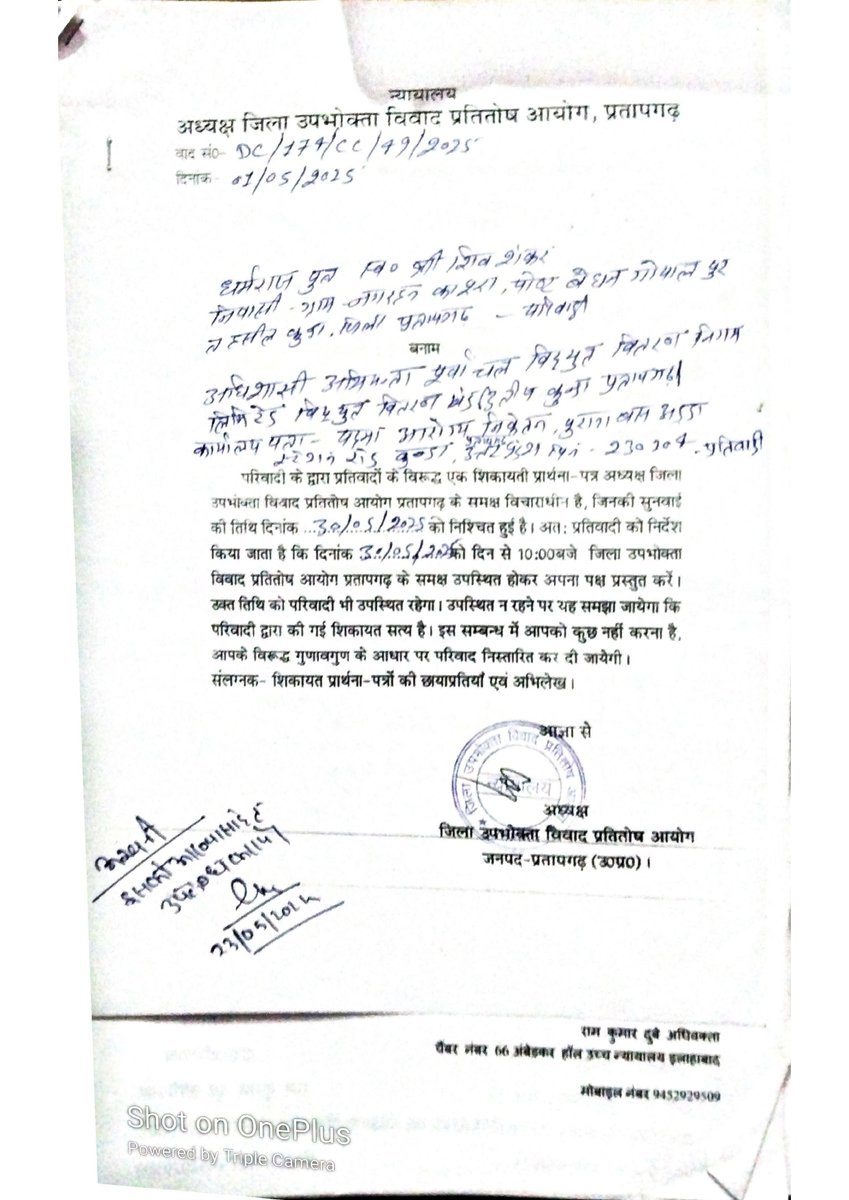 न्यायालय
अध्यक्ष जिला उपभोक्ता विवाद प्रतितोष आयोग, प्रतापगढ़
वाद सं०- DC/174/CC/49/2025
दिनांक- 01/05/2025
धर्मराज पुत्र स्व० श्री शिव शंकर
निवासी ग्राम पोस्ट गोपाल पुर
तहसील कुन्डा, जिला प्रतापगढ़ - परिवादी
बनाम
अधिशासी अभियन्ता पूर्वांचल विद्युत वितरण निगम
लिमिटेड विद्युत वितरण खंड द्वितीय कुन्डा प्रतापगढ़
कार्यालय पता- पद्मा आरोग्य निकेतन, पुराना बस अड्डा
स्टेशन रोड कुन्डा, प्रतापगढ़ उत्तर प्रदेश Pin - 230204 - प्रतिवादी
परिवादी के द्वारा प्रतिवादों के विरूद्ध एक शिकायती प्रार्थना-पत्र अध्यक्ष जिला
उपभोक्ता विवाद प्रतितोष आयोग प्रतापगढ़ के समक्ष विचाराधीन है, जिनकी सुनवाई
की तिथि दिनांक ...30/05/2025 को निश्चित हुई है। अतः प्रतिवादी को निर्देश
किया जाता है कि दिनांक 30/05/2025को दिन से 10:00बजे जिला उपभोक्ता
विवाद प्रतितोष आयोग प्रतापगढ़ के समक्ष उपस्थित होकर अपना पक्ष प्रस्तुत करें।
उक्त तिथि को परिवादी भी उपस्थित रहेगा। उपस्थित न रहने पर यह समझा जायेगा कि
परिवादी द्वारा की गई शिकायत सत्य है। इस सम्बन्ध में आपको कुछ नहीं करना है,
आपके विरूद्ध गुणावगुण के आधार पर परिवाद निस्तारित कर दी जायेगी।
संलग्नक- शिकायत प्रार्थना-पत्रों की छायाप्रतियाँ एवं अभिलेख।
आज्ञा से
जिला उपभोक्ता विवाद प्रतितोष
अध्यक्ष
जिला उपभोक्ता विवाद प्रतितोष आयोग
जनपद-प्रतापगढ़ (उ०प्र०)।
23/05/2025
राम कुमार दुबे अधिवक्ता
चैंबर नंबर 66 अंबेडकर हॉल उच्च न्यायालय इलाहाबाद
मोबाइल नंबर 9452929509
Shot on OnePlus
Powered by Triple Camera